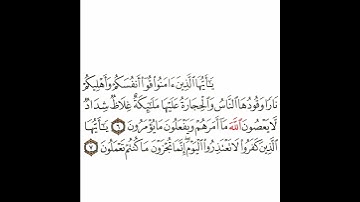 يَـٰٓأَيُّهَا ٱلَّذِينَ ءَامَنُوا۟ قُوٓا۟ أَنفُسَكُمْ وَأَهْلِيكُمْ
نَارًا وَقُودُهَا ٱلنَّاسُ وَٱلْحِجَارَةُ عَلَيْهَا مَلَـٰٓئِكَةٌ غِلَاظٌ شِدَادٌ
لَّا يَعْصُونَ ٱللَّهَ مَآ أَمَرَهُمْ وَيَفْعَلُونَ مَا يُؤْمَرُونَ ٦ يَـٰٓأَيُّهَا
ٱلَّذِينَ كَفَرُوا۟ لَا تَعْتَذِرُوا۟ ٱلْيَوْمَ إِنَّمَا تُجْزَوْنَ مَا كُنتُمْ تَعْمَلُونَ ٧